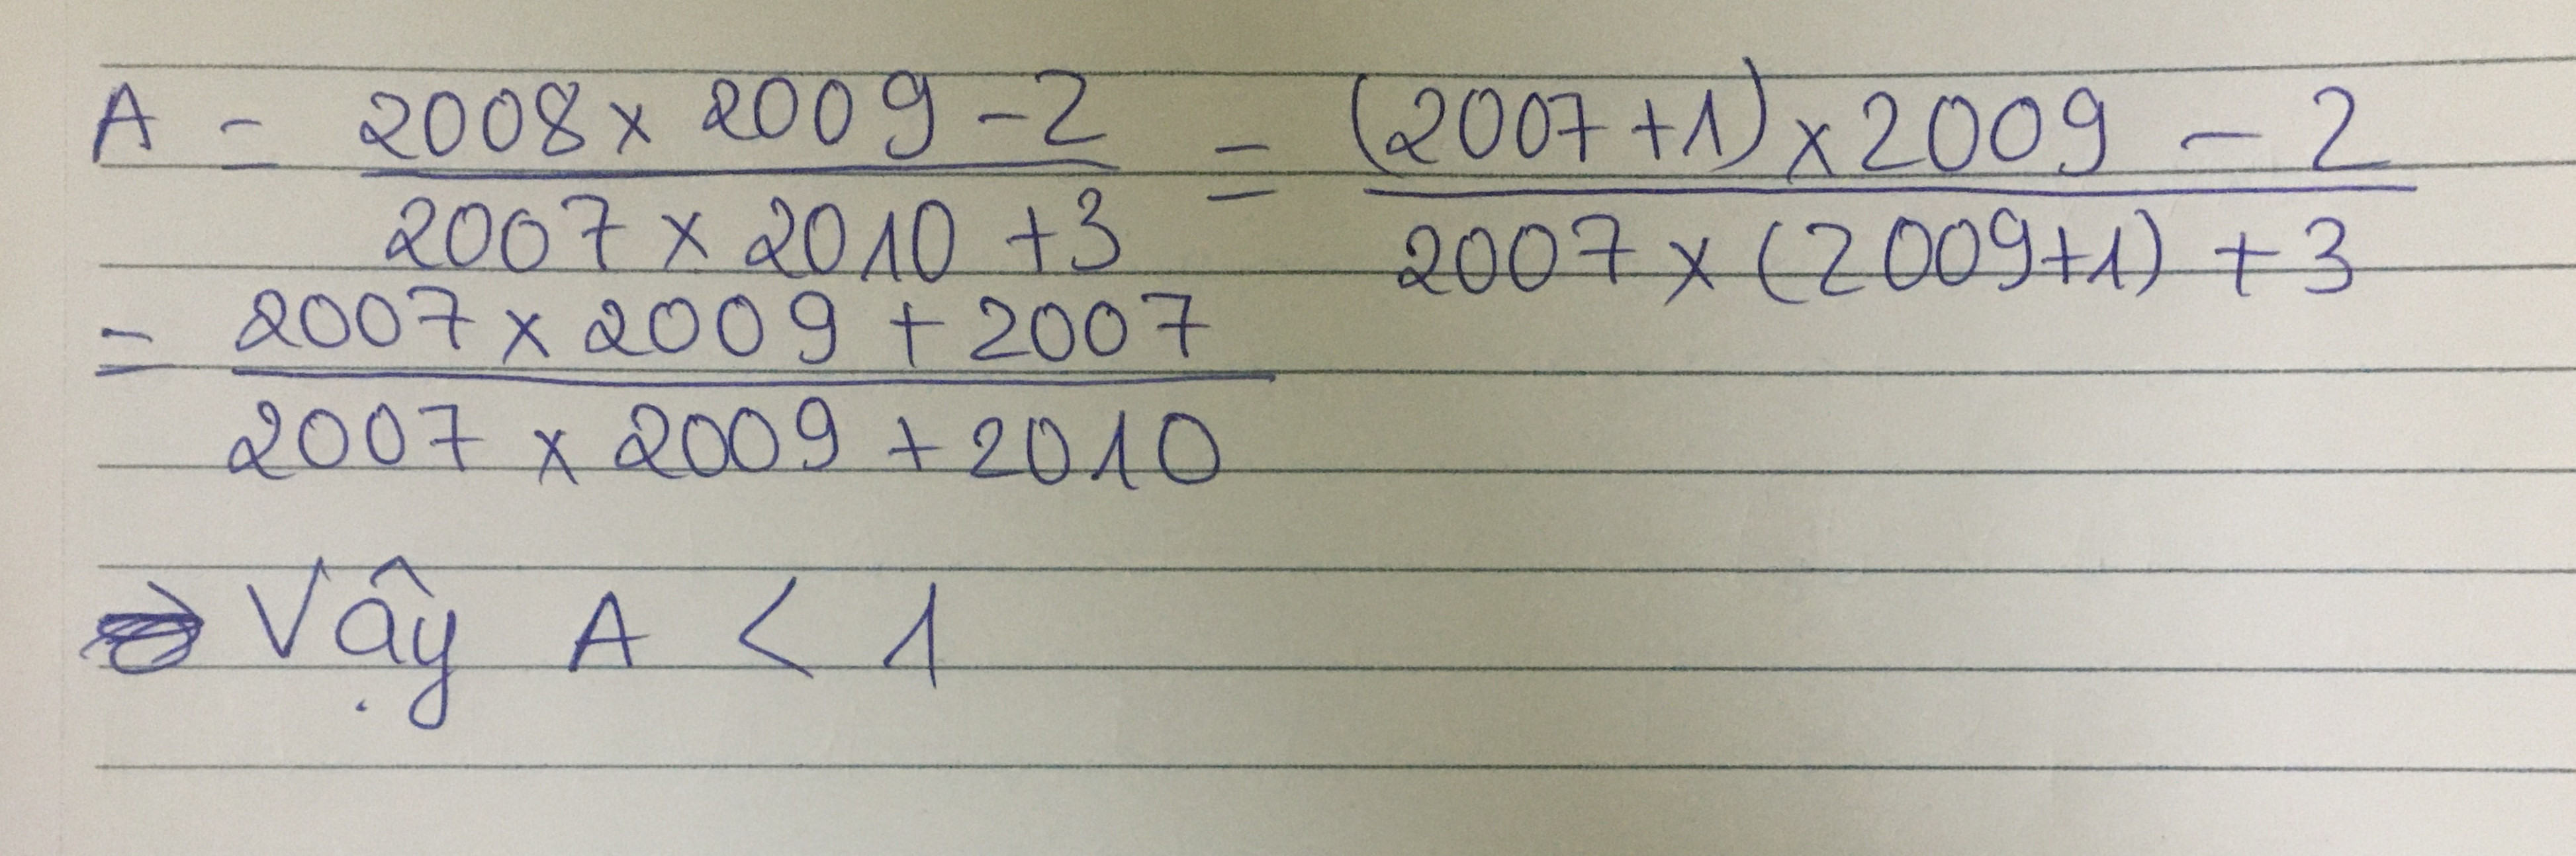 A = (2008 x 2009 - 2) / (2007 x 2010 + 3) = ((2007 + 1) x 2009 - 2) / (2007 x (2009 + 1) + 3)
= (2007 x 2009 + 2007) / (2007 x 2009 + 2010)
Vậy A < 1